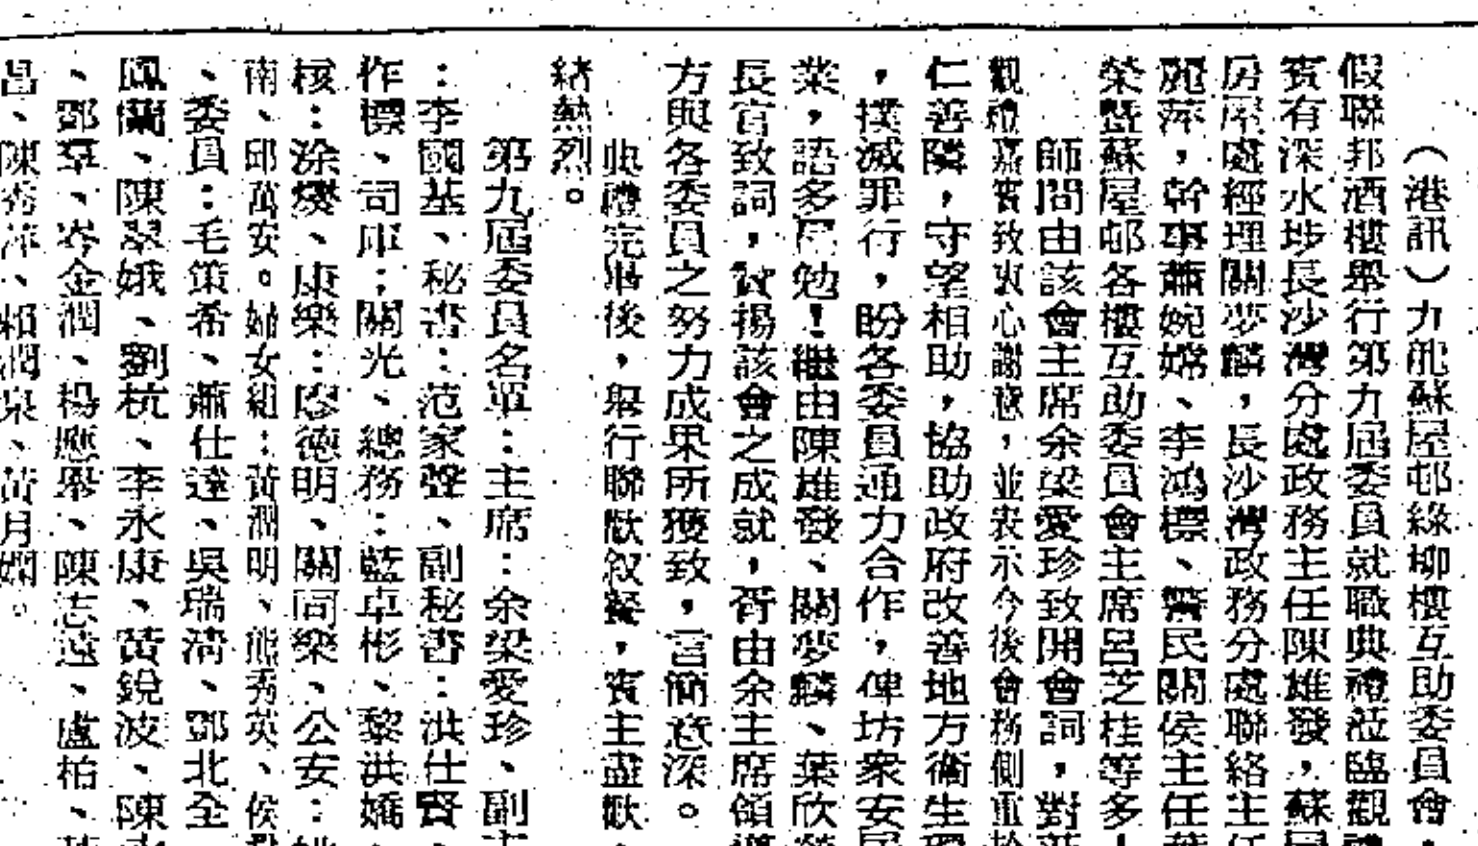 （港訊）九龍蘇屋邨綠柳樓互助委員會，
假聯邦酒樓舉行第九屆委員就職典禮蒞臨觀禮
賓有深水埗長沙灣分處政務主任陳雄發，蘇屋
房屋處經理關夢麟，長沙灣政務分處聯絡主任
麗萍，幹事蕭婉嫦、李鴻標、警民關侯主任葉
榮暨蘇屋邨各樓互助委員會主席呂芝桂等多人
師間由該會主席余梁愛珍致開會詞，對蒞
觀禮嘉賓致衷心謝意，並表示今後會務側重於
仁善隣，守望相助，協助政府改善地方衞生環
，撲滅罪行，盼各委員通力合作，俾坊衆安居
業，語多勗勉！繼由陳雄發、關夢麟、葉欣榮
長官致詞，讚揚該會之成就，胥由余主席領導
方與各委員之努力成果所獲致，言簡意深。
典禮完畢後，舉行聯歡敘餐，賓主盡歡，
緒熱烈。
第九屆委員名單：主席：余梁愛珍、副主
：李國基、秘書：范家聲、副秘書：洪仕賢、
作標、司庫：關光、總務：藍卓彬、黎洪嬌、
核：涂燦、康樂：廖德明、關同樂、公安：姚
南、邱萬安。婦女組：黃潤明、熊秀英、侯
、委員：毛策希、蕭仕達、吳瑞淸、鄧北全
鳳蘭、陳翠娥、劉杭、李永康、黃鏡波、陳
、鄧羣、岑金潤、楊應舉、陳志遠、盧柏、
昌、陳秀萍、賴潤泉、黃月嫻。